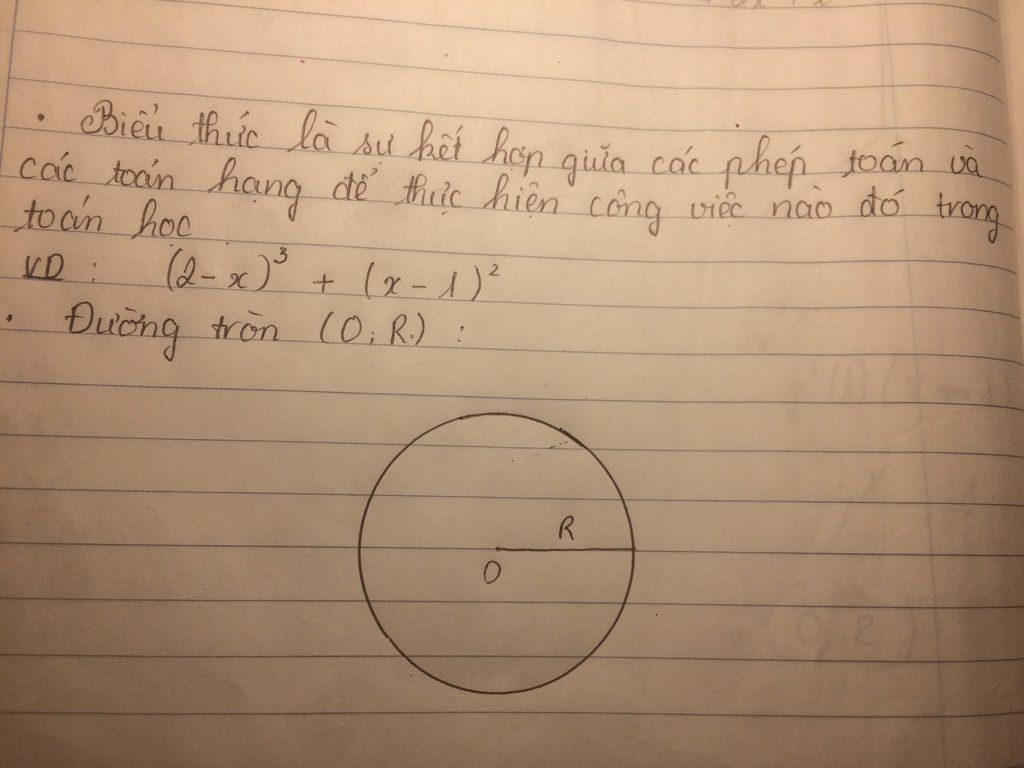 • Biểu thức là sự kết hợp giữa các phép toán và
các toán hạng để thực hiện công việc nào đó trong
toán học
VD : (2-x)³ + (x-1)²
• Đường tròn (O; R) :
R
O